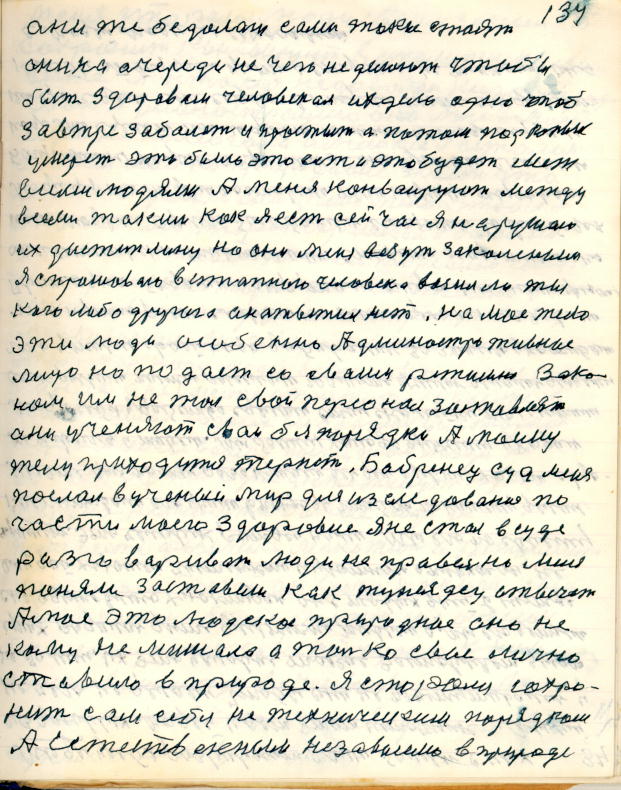 137
они же бедолаги сами токи стоят
они на очереди не чего не делоют чтобы
быт здоровам человекам их дело одно чтоб
завтре заболет и простыт а потом
умерет это было это ест и это будет меж
всеми людями А меня конваируют между
всеми таким как я ест сей час Я нарушаю
их дистиплину но они меня везут закаленым
Я спрашоваю встатного человека
кого либо другога он ответил нет. на мое тело
эти люди особенно Административное
лицо но подает со своим Зако-
ном им не тол свой персонал заставлят
они ученяют свои порядки А моему
телу приходится терпет. Бобринец суд меня
послал в ученый мир для изследования по
части моего здоровие Я не стал в суде
разговариват люди не правелно меня
поняли заставели как тунеядсу отвечат
А мое это людское природное оно не
кому не мишало а толко свое лично
ставило в природе. Я сторался сохро-
нит сам себя не техническим порядком
А Естественым независемо в природе